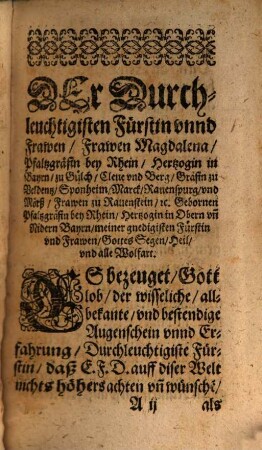 DEr Durch-
leuchtigisten Fürstin vnnd
Frawen / Frawen Magdalena /
Pfaltzgräfin bey Rhein / Hertzogin in
Bayrn / zu Gülch / Cleue vnd Berg / Gräfin zu
Veldentz / Sponheim / Marck / Rauenspurg / vnd
Mörß / Frawen zu Rauenstein / ꝛc. Gebornen
Pfaltzgräfin bey Rhein / Hertzogin in Obern vñ
Nidern Bayrn / meiner gnedigisten Fürstin
vnd Frawen / Gottes Segen / Heil /
vnd alle Wolfart.
ES bezeuget / Gott
lob / der wisseliche / all-
bekante / vnd bestendige
Augenschein vnnd Er-
fahrung / Durchleuchtigiste Für-
stin / daß E. F. D. auff diser Welt
nichts höhers achten vñ wünschẽ /
A ij als